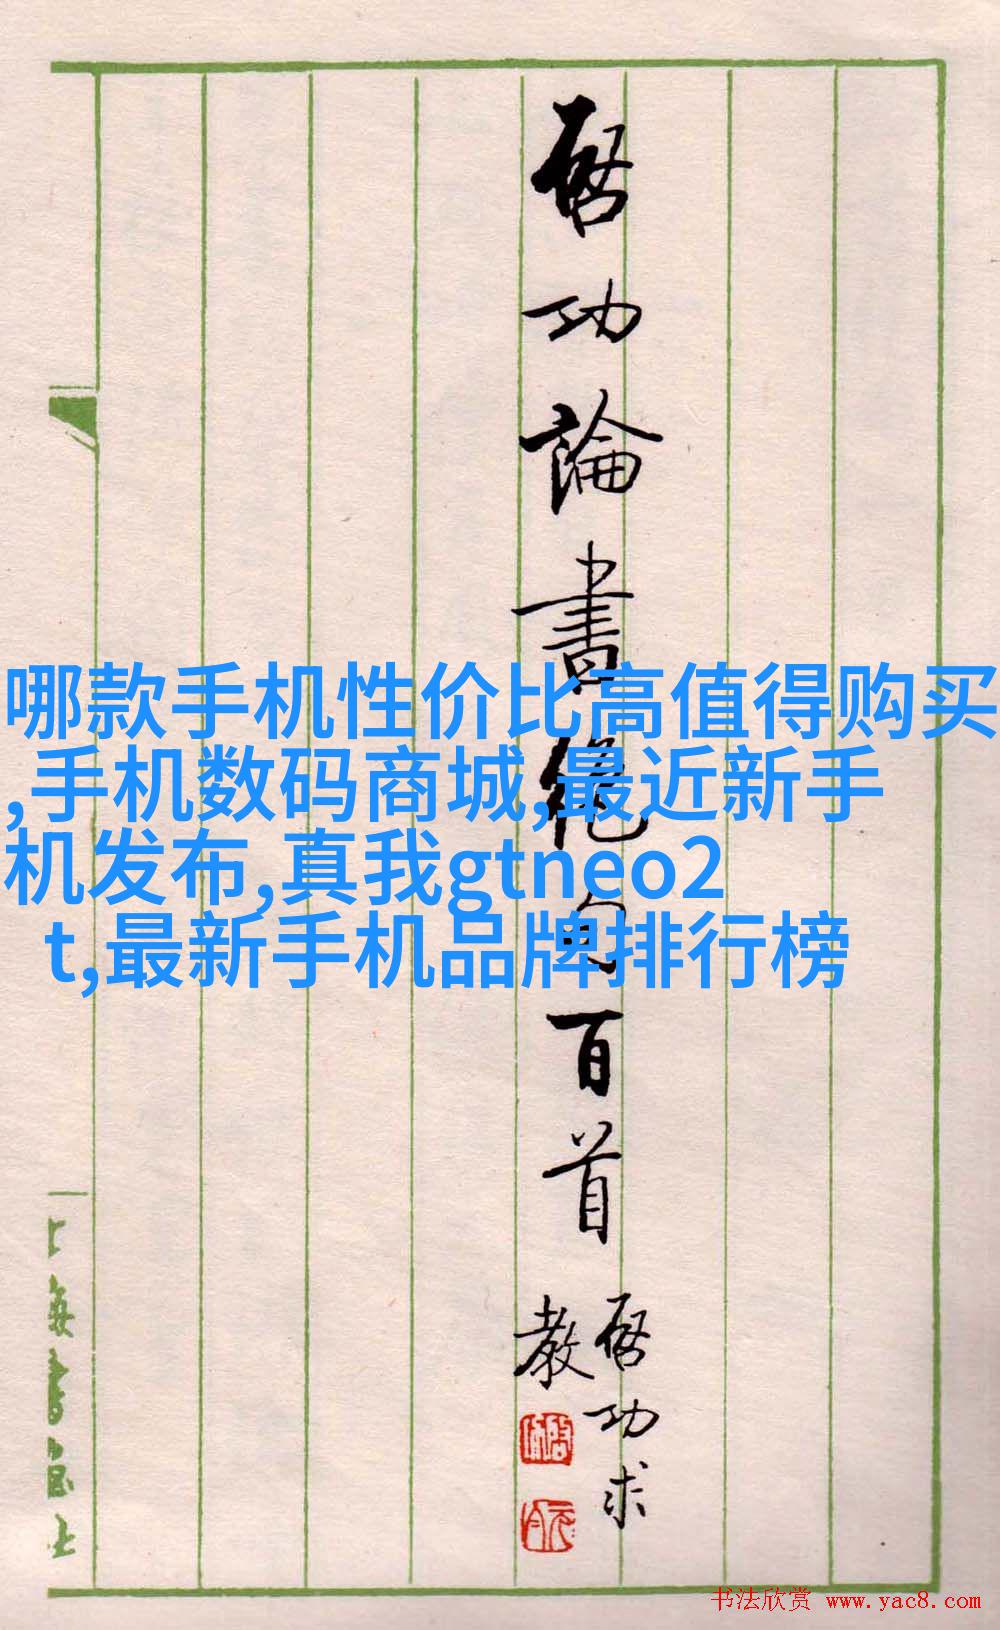 啓功論書絕句百首
啓功求
教
哪款手机性价比高值得购买
,手机数码商城,最近新手
机发布,真我gtneo2
t,最新手机品牌排行榜
上海書画社
启功
元白
书法欣赏 www.yac8.com